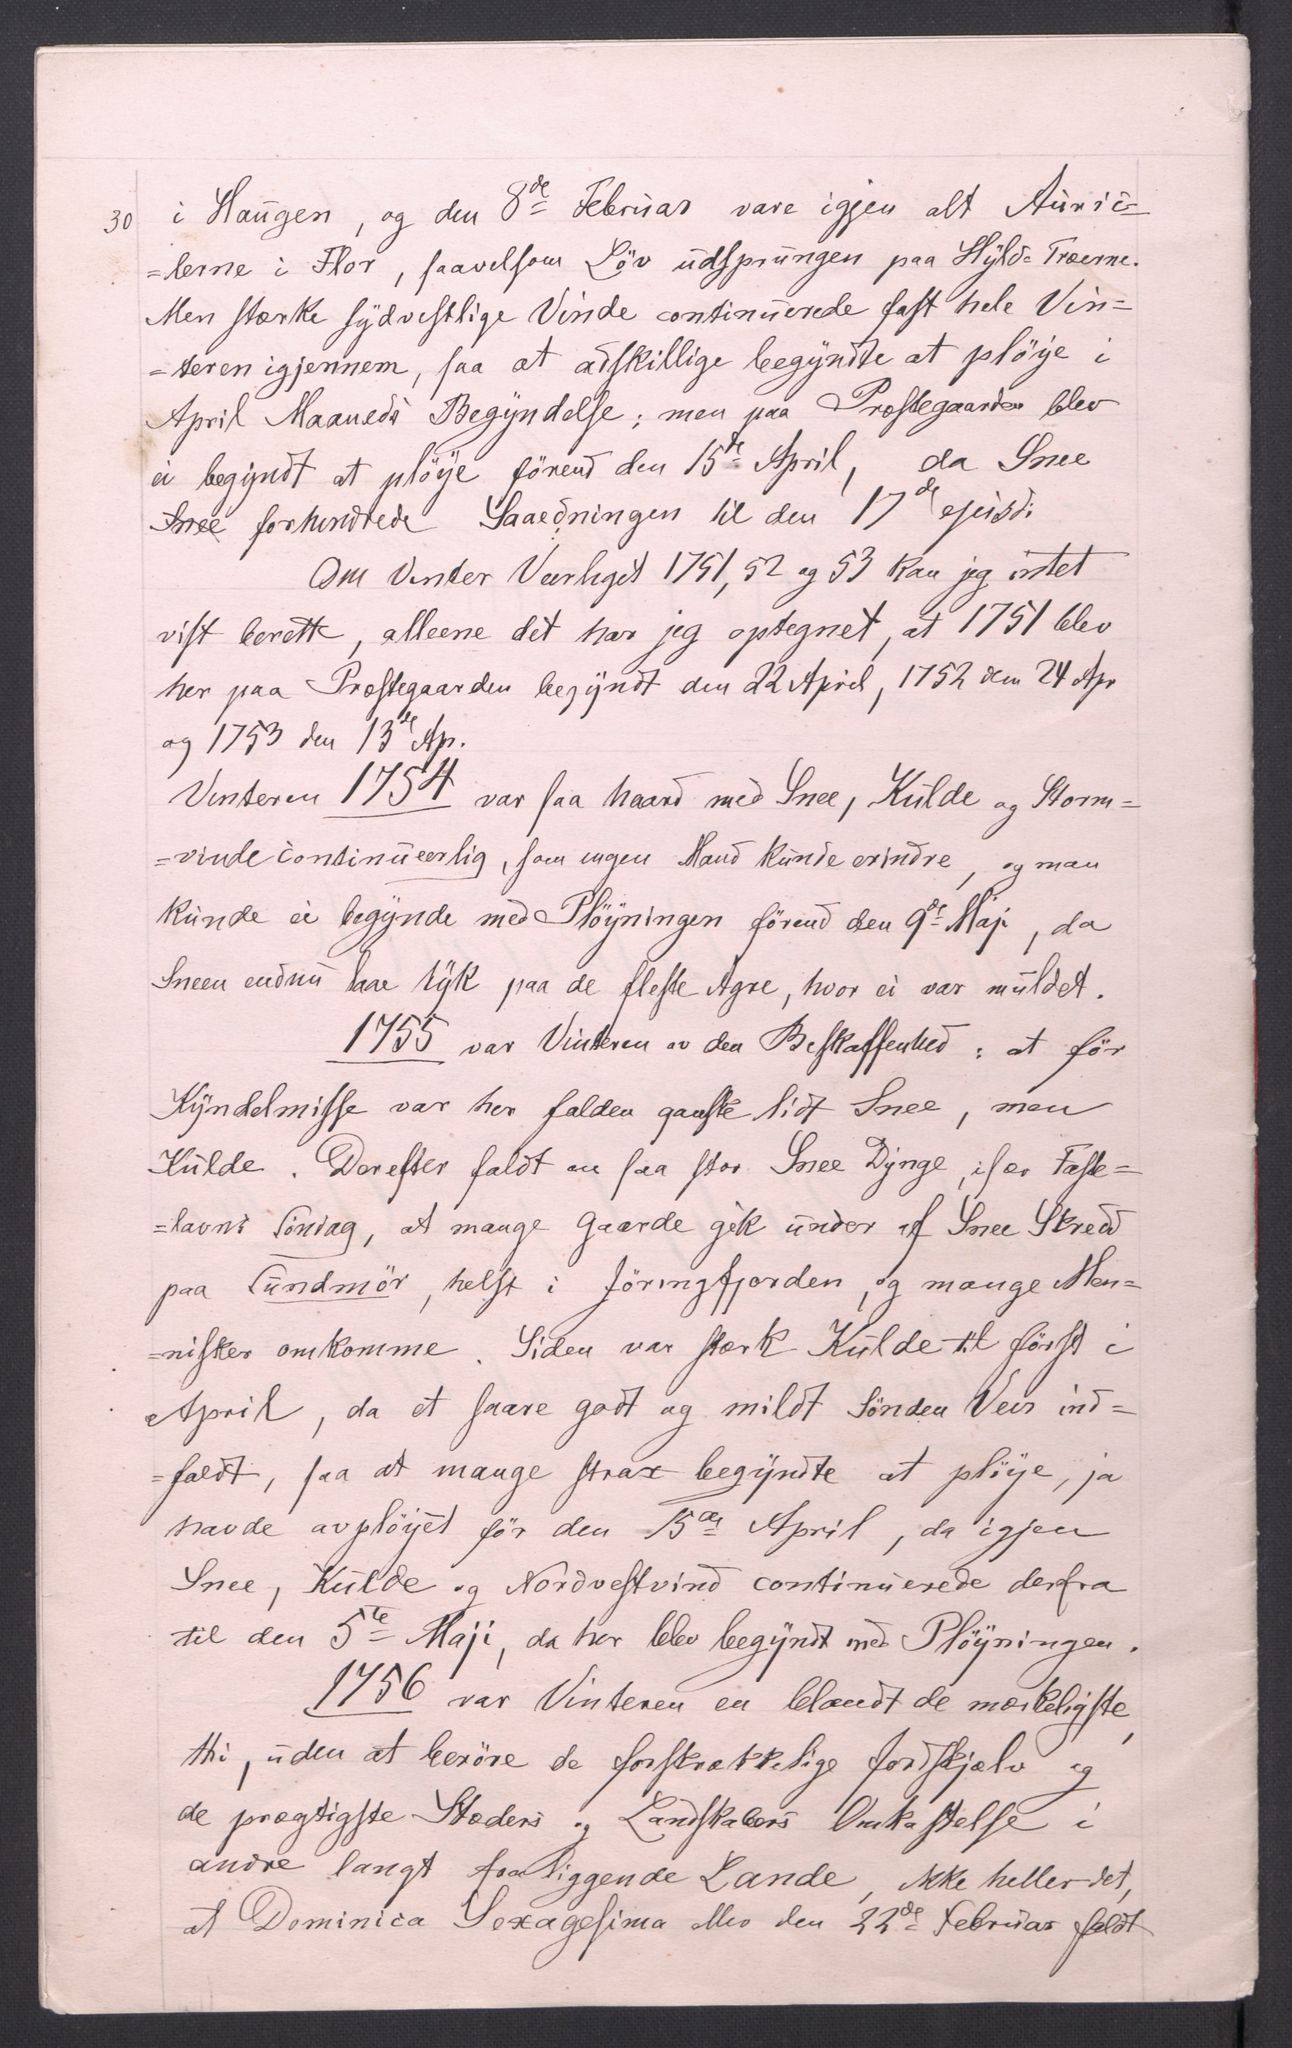 30 i Haugen, og den 8de Februar vare igjen alt Auric=
=lerne i Flor, saavelsom Löv udsprungen paa Hyld=Træerne.
Men stærke sydvestlige Vinde continuerede fast hele Vin=
=teren igjennem, saa at adskillige begyndte at plöye i
April Maaneds Begyndelse; men paa Præstegaarden blev
ei begyndt at plöye förend den 15de April, da Snee
Snee forhindrede Saaedningen til den 17de ejusd:
Om Vinter Veirliget 1751, 52 og 53 kan jeg intet
vist berette, alleene det har jeg optegnet, at 1751 blev
her paa Præstegaarden begyndt den 22 April, 1752 den 24 Apr
og 1753 den 13de Ap.
Vinteren 1754 var saa haard med Snee, Kulde og Storm=
=vinde continueerlig, som ingen Mand kunde erindre, og man
kunde ei begynde med Plöyningen förend den 9de Maji, da
Sneen endnu laae tyk paa de fleste Agre, hvor ei var muldet.
1755 var Vinteren av den Beskaffenhed: at för
Kyndelmisse var her falden ganske lidt Snee, men
Kulde. Derefter faldt en saa stor Snee Dynge, især Faste=
=lavns Söndag, at mange Gaarde gik under af Snee Skred
paa Sundmör, helst i Jöringfjorden, og mange Men=
=nisker omkomme. Siden var stærk Kulde til först i
April, da et saare godt og mildt Sönden Veir ind=
=faldt, saa at mange strax begyndte at plöye, ja
havde avplöyet för den 15de April, da igjen
Snee, Kulde og Nordvestvind continuerede derfra
til den 5te Maji, da her blev begyndt med Plöyningen.
1756 var Vinteren en blandt de mærkeligste,
thi, uden at beröre de forskrækkelige Jordskjælv og
de prægtigste Stæders og Landskabers Omkastelse i
andre langt fraliggende Lande, ikke heller det,
at Dominica Sexagesima den 22de Februar faldt